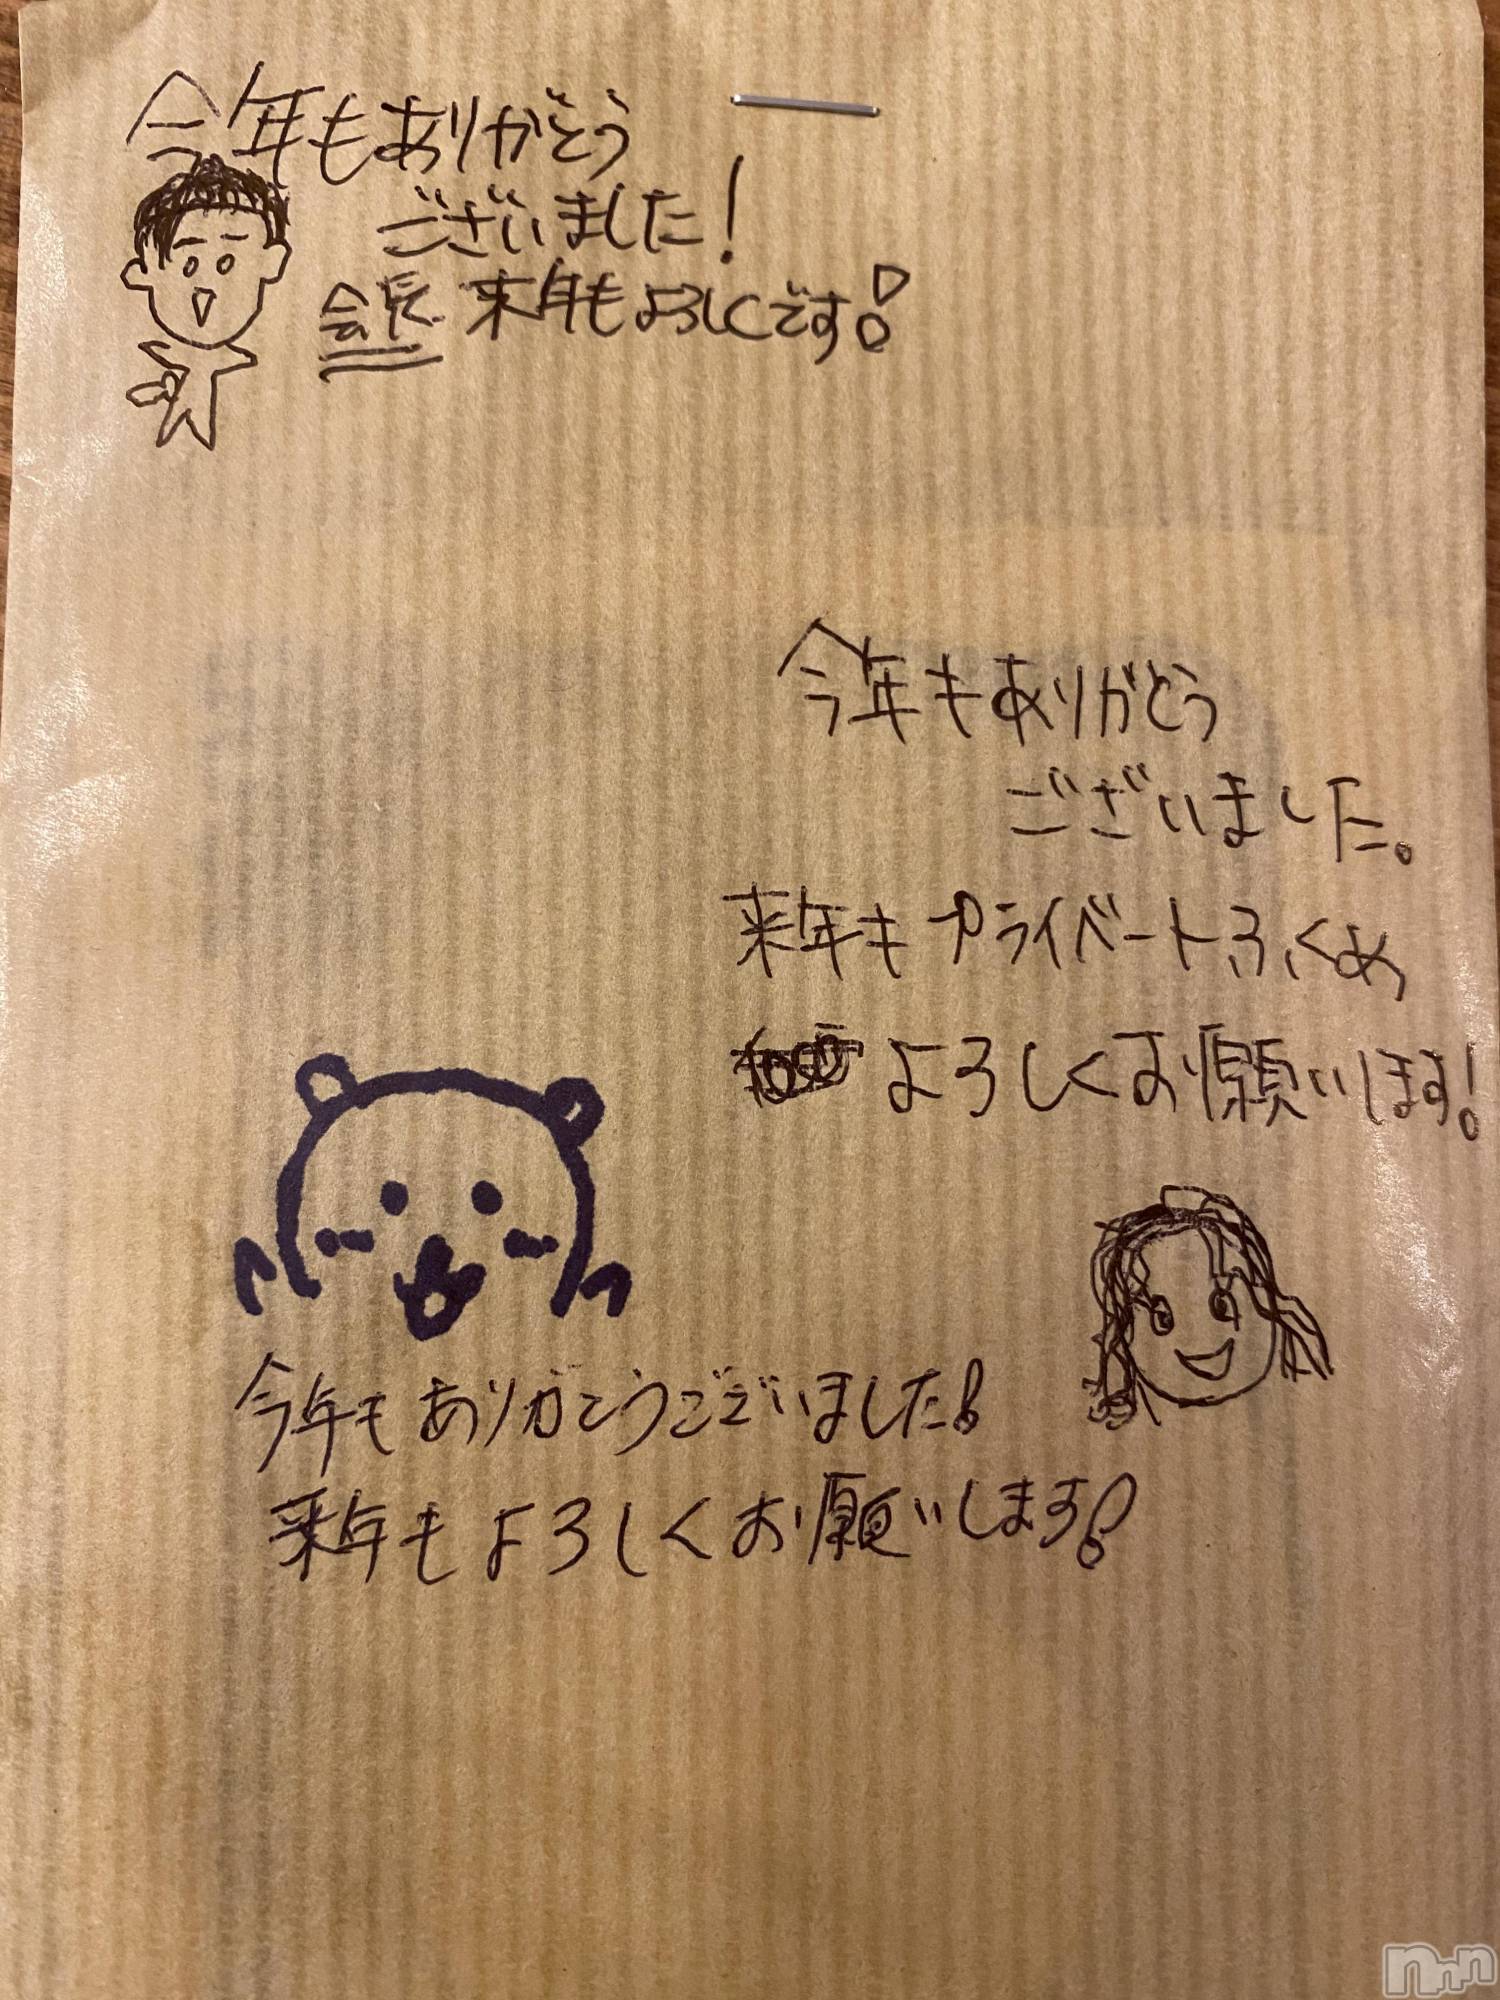 今年もありがとう
ございました!
会長 来年もよろしくです!
今年もありがとう
ございました。
来年もプライベートふくめ
よろしくお願いします!
今年もありがとうございました!
来年もよろしくお願いします!
nnn